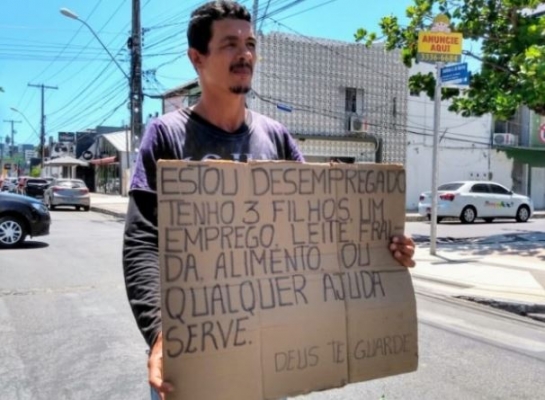 ANUNCIE
AQUI
ESTOU DESEMPREGADO
TENHO 3 FILHOS, UM
EMPREGO, LEITE, FRAL
DA, ALIMENTO, OU
QUALQUER AJUDA
SERVE.
DEUS TE GUARDE.